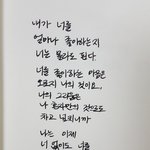 내가 너를
얼마나 좋아하는지
너는 몰라도 된다
너를 좋아하는 마음은
오로지 나의 것이요,
나의 그리움은
나 혼자만의 것으로도
차고 넘치니까
나는 이제
너 없이도 너를